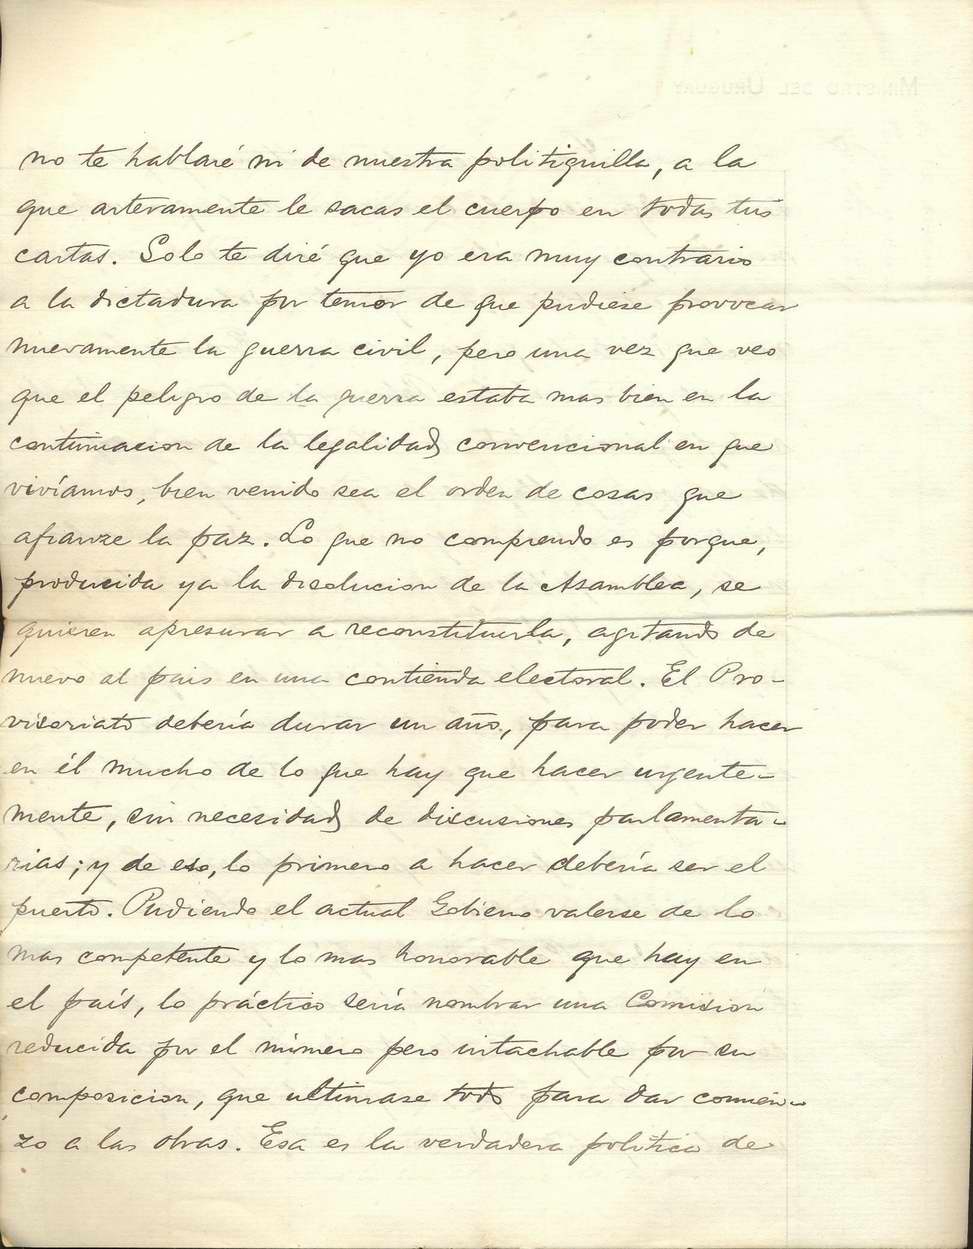 MINISTRO DEL URUGUAY
no te hablaré ni de nuestra politiquilla, a la
que arteramente le sacas el cuerpo en todas tus
cartas. Solo te diré que yo era muy contrario
a la dictadura por temor de que pudiese provocar
nuevamente la guerra civil, pero una vez que veo
que el peligro de la guerra estaba mas bien en la
continuacion de la legalidad convencional en que
vivíamos, bien venido sea el orden de cosas que
afianze la paz. Lo que no comprendo es porque,
producida ya la disolucion de la Asamblea, se
quieren apresurar a reconstituirla, agitando de
nuevo al pais en una contienda electoral. El Pro-
visoriato debería durar un año, para poder hacer
en él mucho de lo que hay que hacer urgente-
mente, sin necesidad de discusiones parlamenta-
rias; y de eso, lo primero a hacer debería ser el
puerto. Pudiendo el actual Gobierno valerse de lo
mas competente y lo mas honorable que hay en
el país, lo práctico sería nombrar una Comision
reducida por el número pero intachable por su
composicion, que ultimase todo para dar comien-
zo a las obras. Esa es la verdadera política de